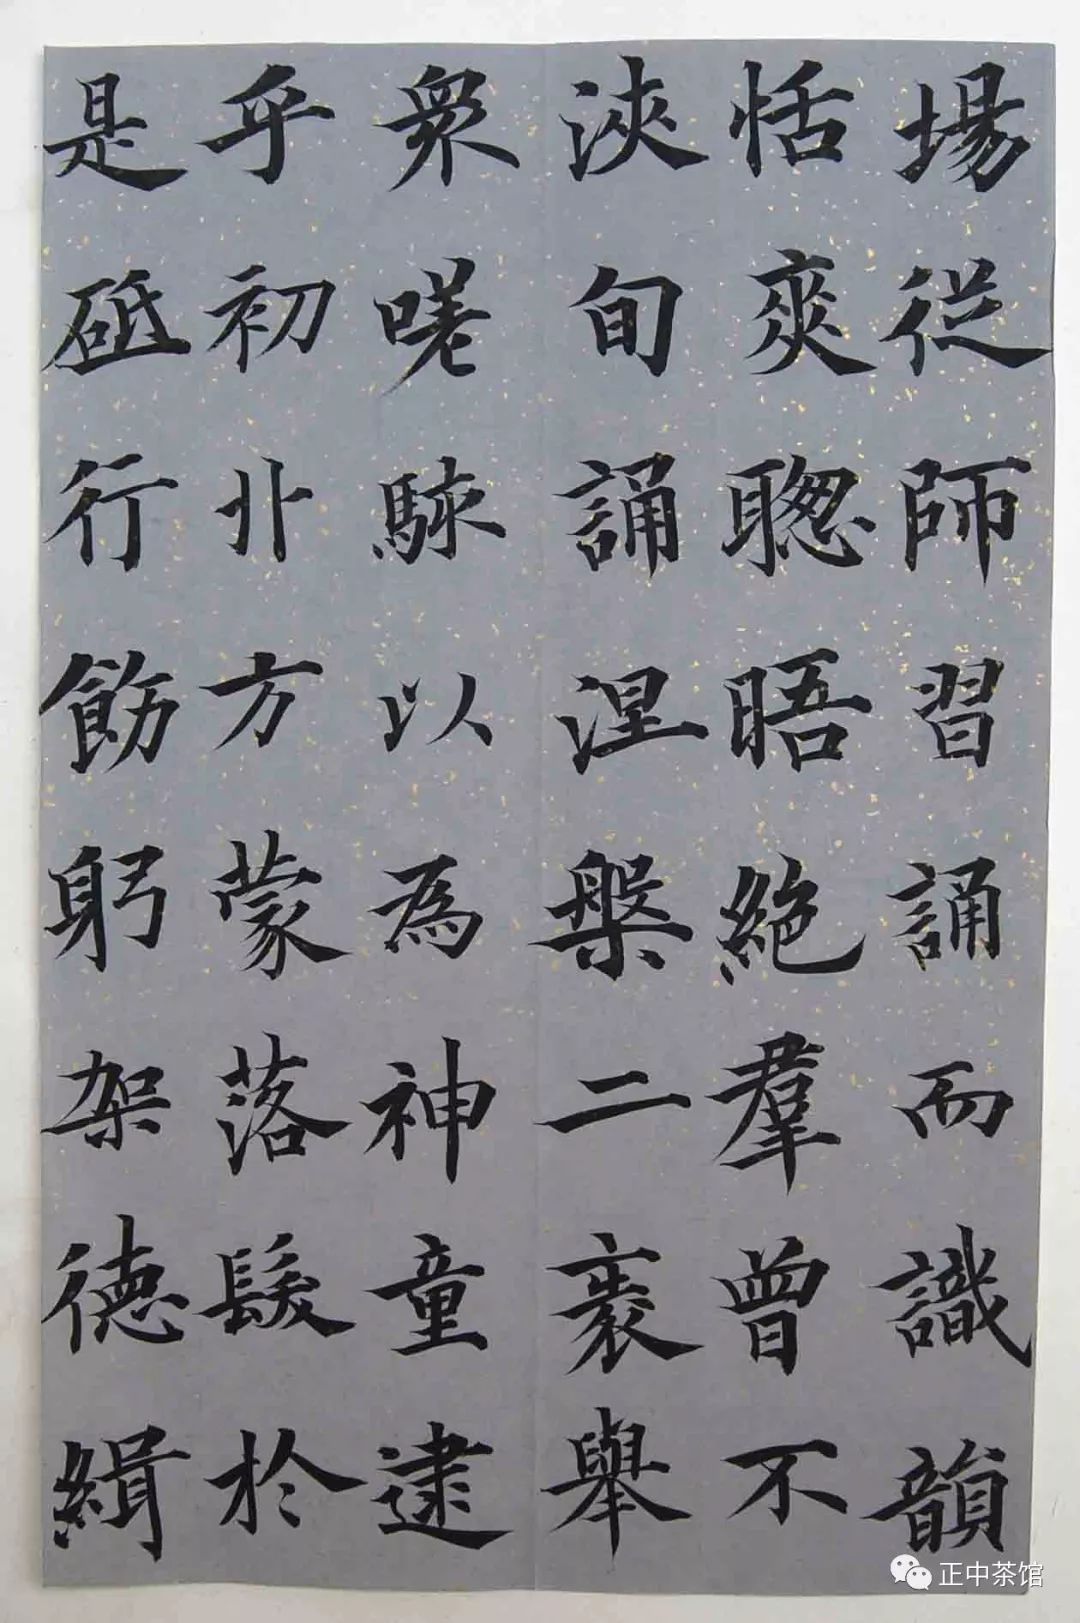 場從師習誦而識韻
恬爽聰晤絶羣曾不
浹旬誦涅槃二裹舉
衆嗟駭以為神童逮
乎初卝方蒙落髮於
是砥行飭躬架德緝
正中茶馆